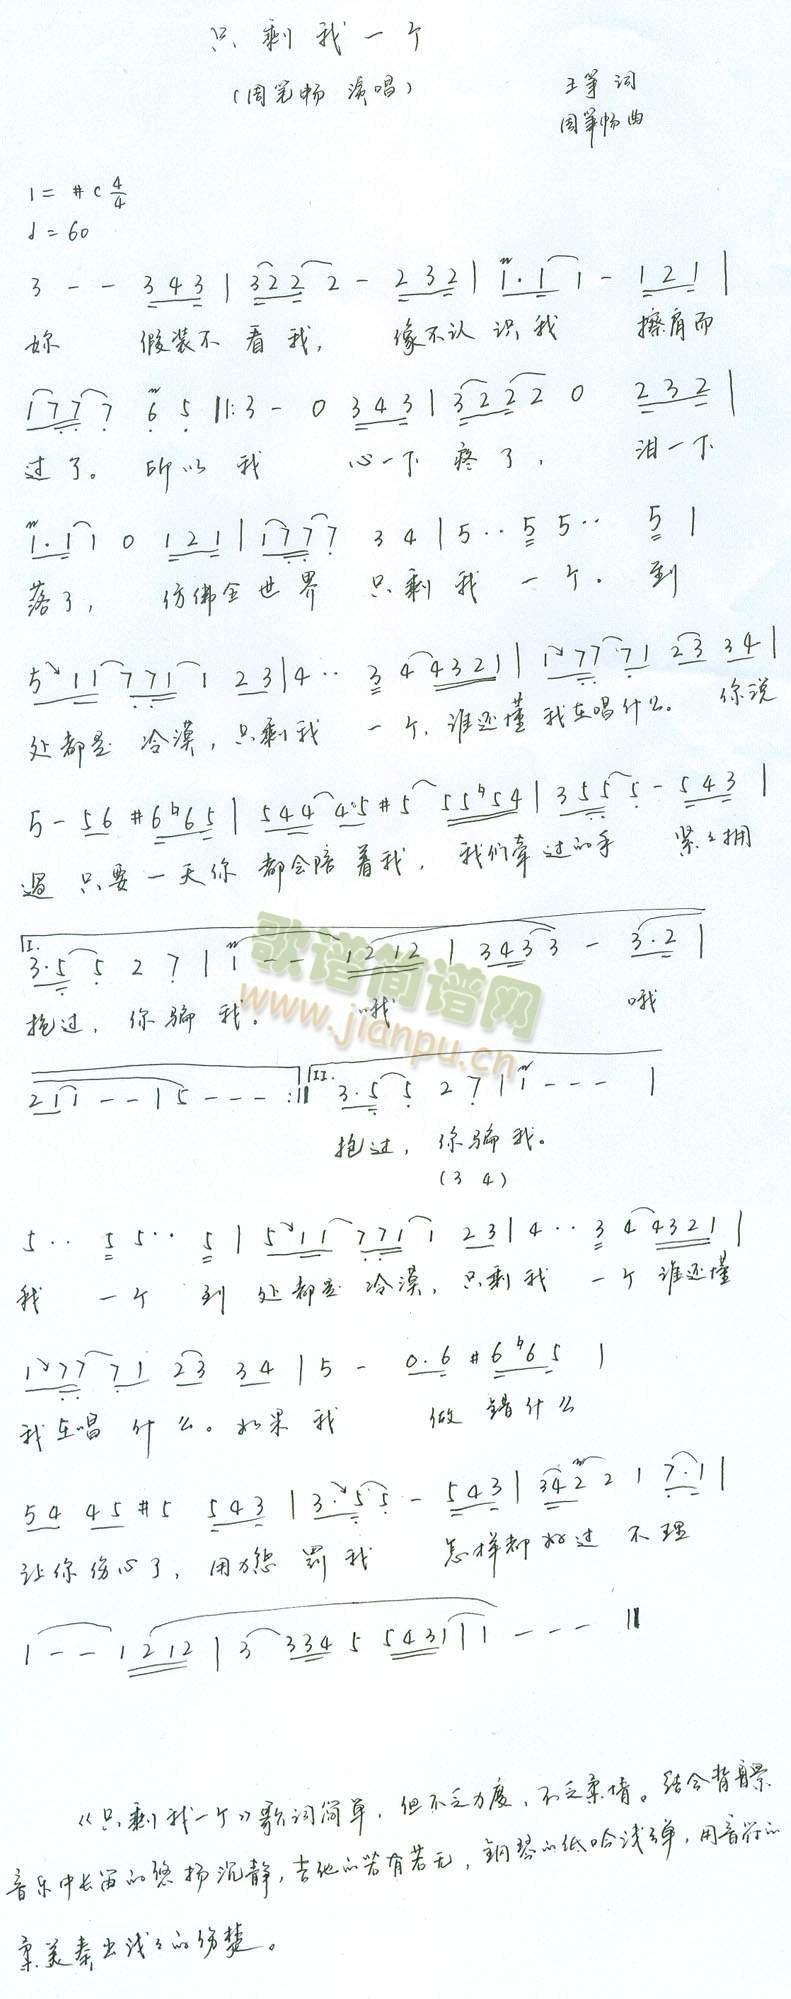 只剩我一个
(周笔畅 演唱)
王筝 词
周笔畅 曲
1= #c 4/4
♩=60
3 - - 3 4 3 | 3 2 2 2 - 2 3 2 | 1 · 1 1 - 1 2 1 |
妳 假装不看我, 像不认识我 擦肩而
1 7 7 7 6 5 ||: 3 - 0 3 4 3 | 3 2 2 2 0 2 3 2 |
过了。所以我 心一下疼了, 泪一下
1 · 1 1 0 1 2 1 | 1 7 7 7 3 4 | 5 · · 5 5 · · 5 |
落了, 仿佛全世界 只剩我 一个。到
5 1 1 7 7 1 1 2 3 | 4 · · 3 4 4 3 2 1 | 1 7 7 7 1 2 3 3 4 |
处都是冷漠,只剩我 一个,谁还懂我在唱什么。你说
5 - 5 6 #6 ♮6 5 | 5 4 4 4 5 #5 5 5 ♮5 4 | 3 5 5 5 - 5 4 3 |
过 只要一天你都会陪着我, 我们牵过的手 紧々拥
I.
3 · 5 5 2 7 | 1 - - 1 2 1 2 | 3 4 3 3 - 3 · 2 |
抱过, 你骗我。 哦 哦
歌谱简谱网
www.jianpu.cn
2 1 1 - - | 5 - - - :|| II. 3 · 5 5 2 7 | 1 - - - |
抱过, 你骗我。
(3 4)
5 · · 5 5 · · 5 | 5 1 1 7 7 1 1 2 3 | 4 · · 3 4 4 3 2 1 |
我 一个 到处都是冷漠,只剩我 一个 谁还懂
1 7 7 7 1 2 3 3 4 | 5 - 0 · 6 #6 ♮6 5 |
我在唱什么。如果我 做错什么
5 4 4 5 #5 5 4 3 | 3 · 5 5 - 5 4 3 | 3 4 2 2 1 7 · 1 |
让你伤心了, 用力惩罚我 怎样都好过不理
1 - - 1 2 1 2 | 3 3 3 4 5 5 4 3 1 | 1 - - - ||
《只剩我一个》歌词简单,但不乏力度,不乏柔情。结合背景
音乐中长笛的悠扬沉静,吉他的若有若无,钢琴的低吟浅弹,用音符的
柔美奏出浅々的伤楚。